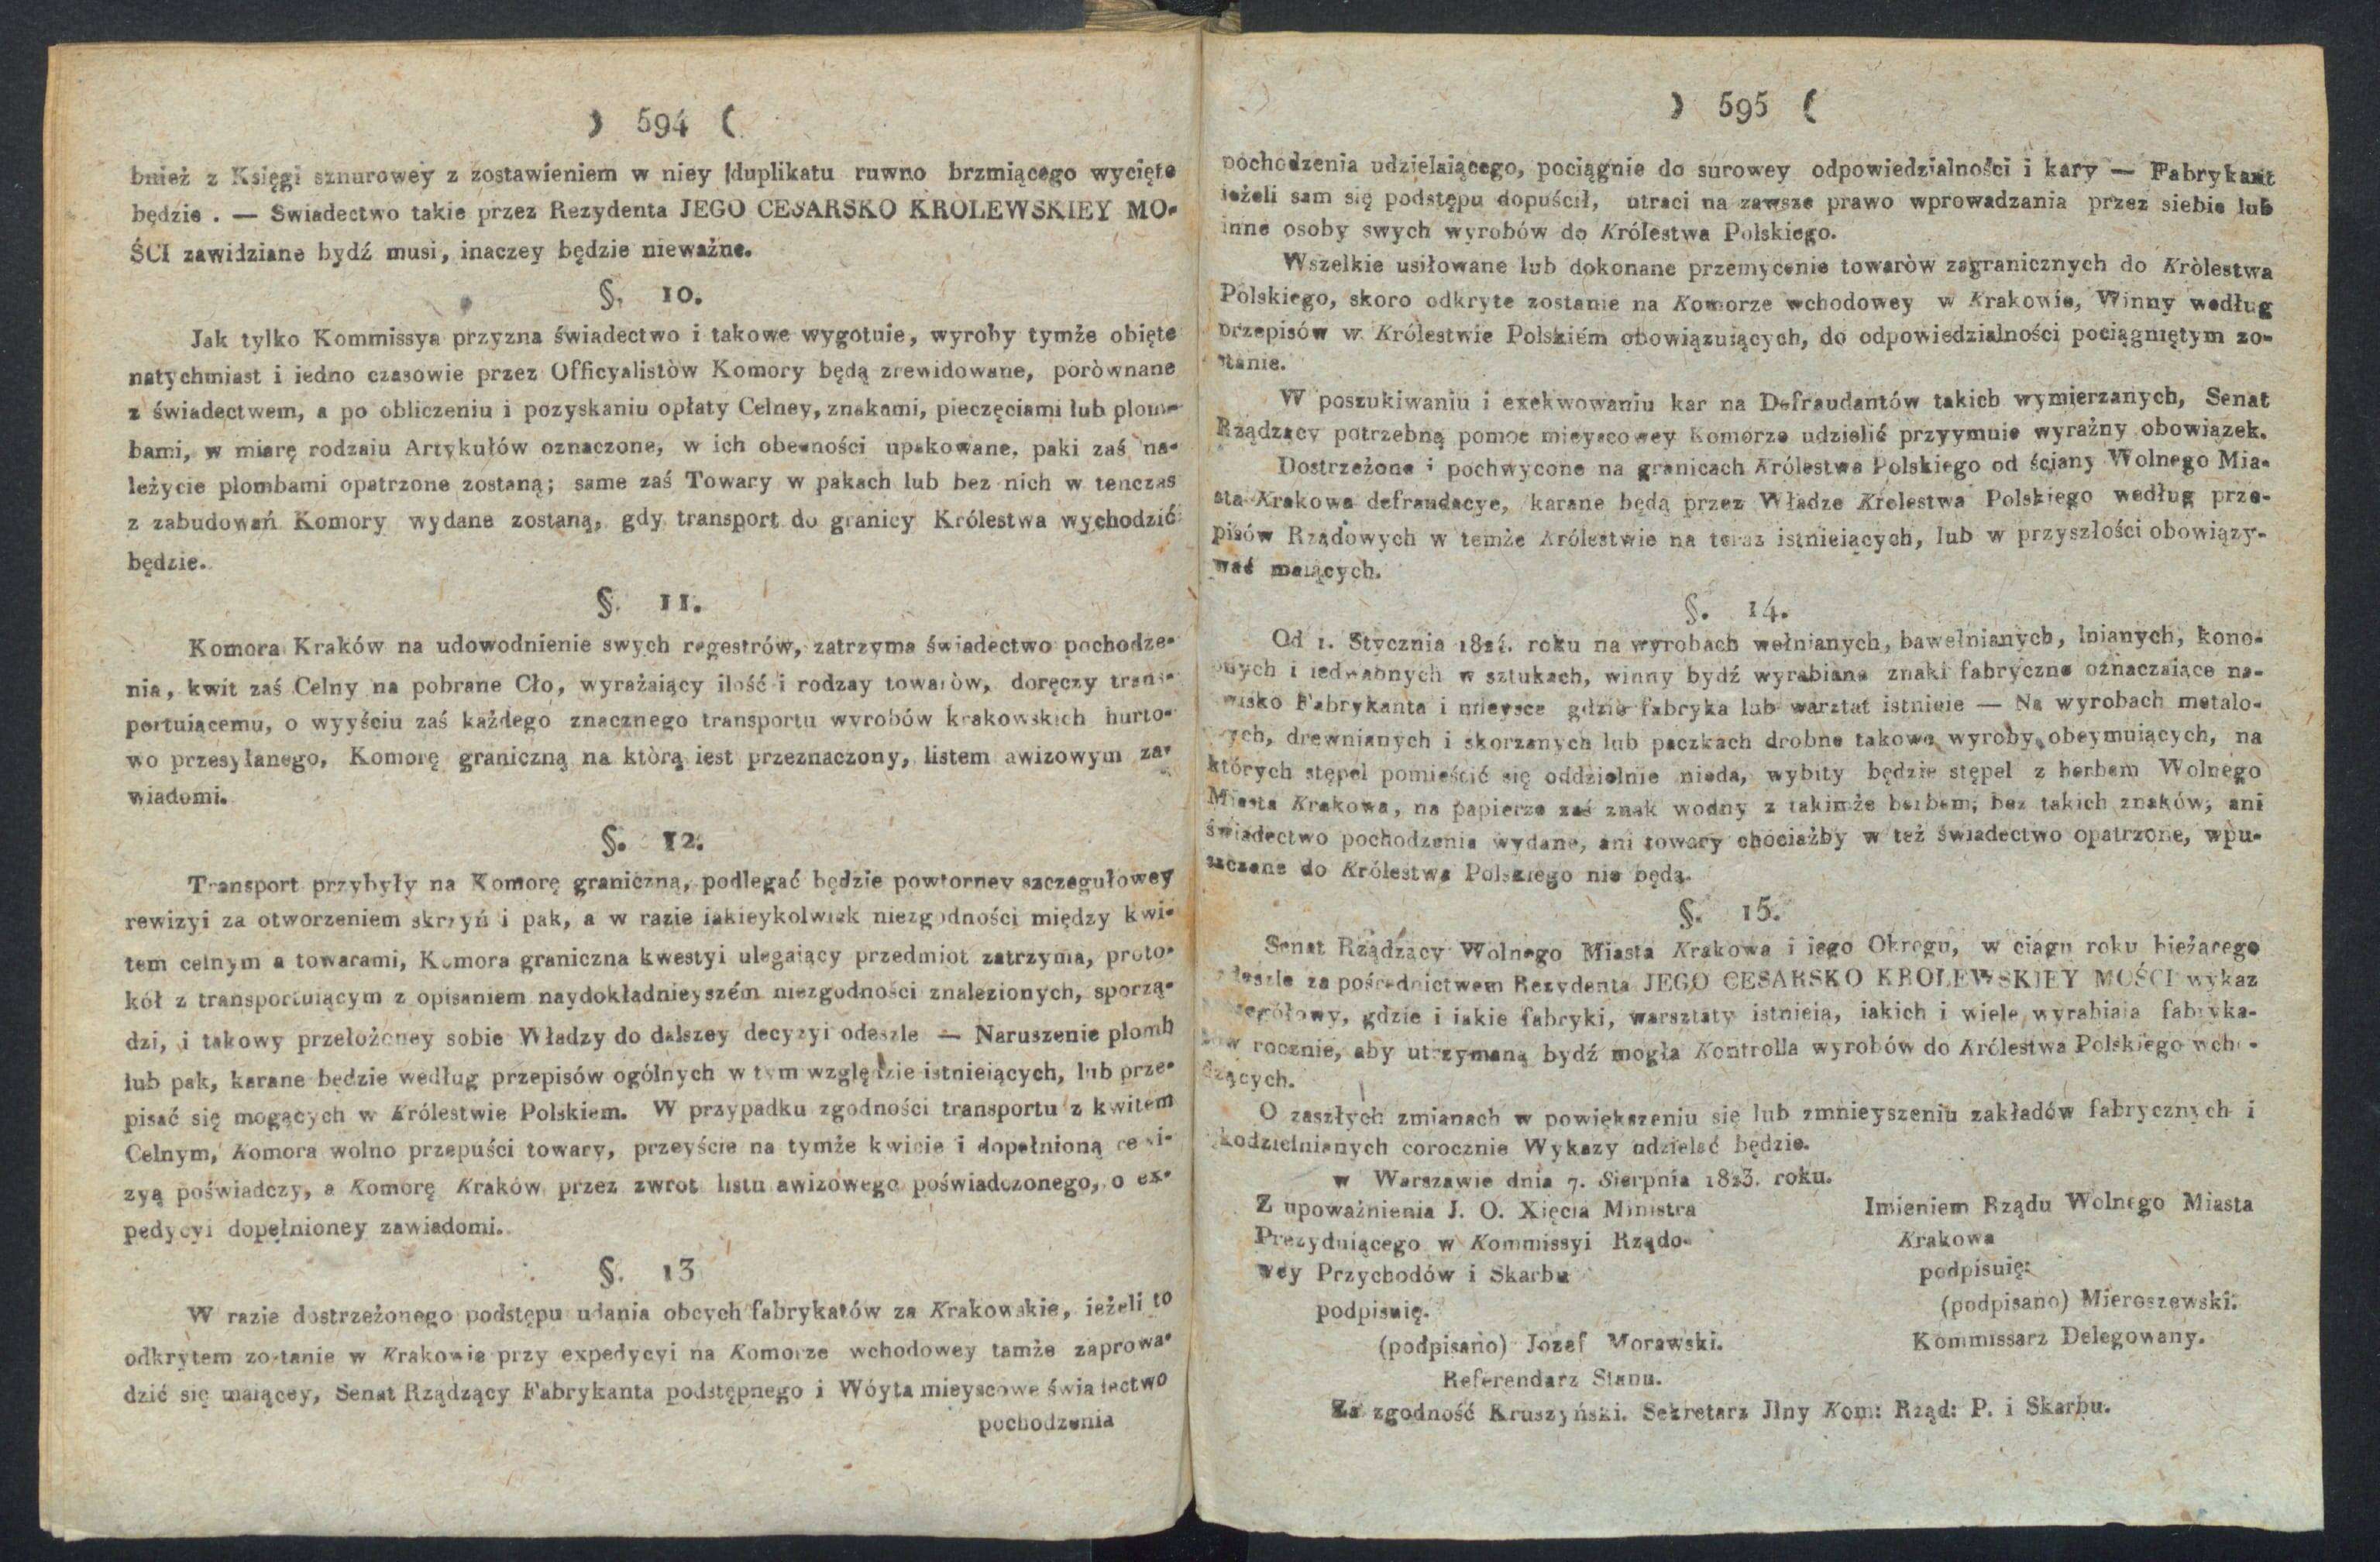 ) 594 (
bnież z Księgi sznurowey z zostawieniem w niey duplikatu ruwno brzmiącego wycięte
będzie . — Swiadectwo takie przez Rezydenta JEGO CESARSKO KROLEWSKIEY MO-
ŚCI zawidziane bydź musi, inaczey będzie nieważne.
§. 10.
Jak tylko Kommissya przyzna świadectwo i takowe wygotuie, wyroby tymże obięte
natychmiast i iedno czasowie przez Officyalistòw Komory będą zrewidowane, poròwnane
z świadectwem, a po obliczeniu i pozyskaniu opłaty Celney, znakami, pieczęciami lub plom-
bami, w miarę rodzaiu Artykułów oznaczone, w ich obecności upakowane, paki zaś na-
leżycie plombami opatrzone zostaną; same zaś Towary w pakach lub bez nich w tenczas
z zabudowań Komory wydane zostaną, gdy transport do granicy Królestwa wychodzić
będzie.
§. 11.
Komora Kraków na udowodnienie swych regestrów, zatrzyma świadectwo pochodze-
nia, kwit zaś Celny na pobrane Cło, wyrażaiący ilość i rodzay towaròw, doręczy trans-
portuiącemu, o wyyściu zaś każdego znacznego transportu wyrobów krakowskich hurto-
wo przesyłanego, Komorę graniczną na którą iest przeznaczony, listem awizowym za-
wiadomi.
§. 12.
Transport przybyły na Komorę graniczną, podlegać będzie powtorney szczegułowey
rewizyi za otworzeniem skrzyń i pak, a w razie iakieykolwiek niezgodności między kwi-
tem celnym a towarami, Komora graniczna kwestyi ulegaiący przedmiot zatrzyma, proto-
kół z transportuiącym z opisaniem naydokładnieyszém niezgodności znalezionych, sporzą-
dzi, i takowy przełożoney sobie Władzy do dalszey decyzyi odeszle — Naruszenie plomb
lub pak, karane będzie według przepisów ogólnych w tym względzie istnieiących, lub prze-
pisać się mogących w Królestwie Polskiem. W przypadku zgodności transportu z kwitem
Celnym, Komora wolno przepuści towary, przeyście na tymże kwicie i dopełnioną rewi-
zyą poświadczy, a Komorę Kraków przez zwrot listu awizowego poświadczonego, o ex-
pedycyi dopełnioney zawiadomi.
§. 13
W razie dostrzeżonego podstępu udania obcych fabrykatów za Krakowskie, ieżeli to
odkrytem zostanie w Krakowie przy expedycyi na Komorze wchodowey tamże zaprowa-
dzić się maiącey, Senat Rządzący Fabrykanta podstępnego i Wóyta mieyscowe świadectwo
pochodzenia
) 595 (
pochodzenia udzielaiącego, pociągnie do surowey odpowiedzialności i kary — Fabrykant
ieżeli sam się podstępu dopuścił, utraci na zawsze prawo wprowadzania przez siebie lub
inne osoby swych wyrobów do Królestwa Polskiego.
Wszelkie usiłowane lub dokonane przemycenie towaròw zagranicznych do Kròlestwa
Polskiego, skoro odkryte zostanie na Komorze wchodowey w Krakowie, Winny według
przepisów w Królestwie Polskiém obowiązuiących, do odpowiedzialności pociągniętym zo-
stanie.
W poszukiwaniu i exekwowaniu kar na Defraudantów takich wymierzanych, Senat
Rządzący potrzebną pomoc mieyscowey Komorze udzielić przyymuie wyraźny obowiązek.
Dostrzeżone i pochwycone na granicach Królestwa Polskiego od ściany Wolnego Mia-
sta Krakowa defraudacye, karane będą przez Władze Krolestwa Polskiego według prze-
pisów Rządowych w temże Królestwie na teraz istnieiących, lub w przyszłości obowiązy-
wać maiących.
§. 14.
Od 1. Stycznia 1824. roku na wyrobach wełnianych, bawełnianych, lnianych, kono-
pnych i iedwabnych w sztukach, winny bydź wyrabiane znaki fabryczne oznaczaiące na-
zwisko Fabrykanta i mieysce gdzie fabryka lub warztat istnieie — Na wyrobach metalo-
wych, drewnianych i skorzanych lub paczkach drobne takowe wyroby obeymuiących, na
których stępel pomieścić się oddzielnie nieda, wybity będzie stępel z herbem Wolnego
Miasta Krakowa, na papierze zaś znak wodny z takimże herbem; bez takich znaków, ani
świadectwo pochodzenia wydane, ani towary chociażby w też świadectwo opatrzone, wpu-
szczene do Królestwa Polskiego nie będą.
§. 15.
Senat Rządzący Wolnego Miasta Krakowa i iego Okręgu, w ciągu roku bieżącego
odeszle za pośrednictwem Rezydenta JEGO CESARSKO KROLEWSKIEY MOŚCI wykaz
szczegółowy, gdzie i iakie fabryki, warsztaty istnieią, iakich i wiele wyrabiaia fabryka-
tów rocznie, aby utrzymaną bydź mogła Kontrolla wyrobów do Królestwa Polskiego wcho-
dzących.
O zaszłych zmianach w powiększeniu się lub zmnieyszeniu zakładów fabrycznych i
rękodzielnianych corocznie Wykazy udzielać będzie.
w Warszawie dnia 7. Sierpnia 1823. roku.
Z upoważnienia J. O. Xięcia Ministra
Prezyduiącego w Kommissyi Rządo-
wey Przychodów i Skarbu
podpisuię.
(podpisano) Jozef Morawski.
Referendarz Stanu.
Imieniem Rządu Wolnego Miasta
Krakowa
podpisuię:
(podpisano) Mieroszewski.
Kommissarz Delegowany.
Za zgodność Kruszyński. Sekretarz Jlny Kom: Rząd: P. i Skarbu.